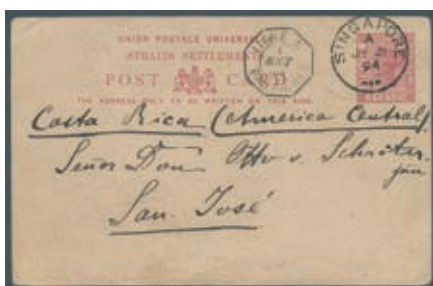 UNION POSTALE UNIVERSELLE
STRAITS SETTLEMENTS
POST CARD
THE ADDRESS ONLY TO BE WRITTEN ON THIS SIDE.
SINGAPORE
A
94
Costa Rica (America Central)
Señor Don Otto v. Schröter
jun
San José